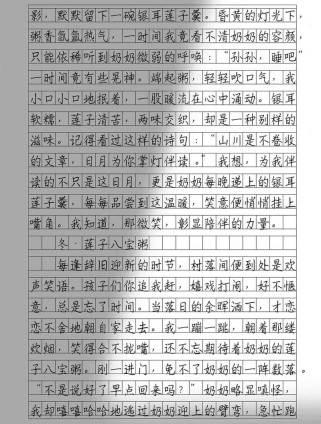 影，默默留下一碗银耳莲子羹。昏黄的灯光下，
粥香氤氲热气，一时间我竟看不清奶奶的容颜，
只能依稀听到奶奶微弱的呼唤：“孙孙，睡吧”
一时间竟有些晃神。端起粥，轻轻吹口气，我
小口小口地抿着，一股暖流在心中涌动。银耳
软糯，莲子清苦，两味交织，却是一种别样的
滋味。记得看过这样的诗句：“山川是不卷收
的文章，日月为你掌灯伴读。”我想，为我伴
读的不只是这日月，更是奶奶每晚递上的银耳
莲子羹，每每品尝到这温暖，笑意便悄悄挂上
嘴角。我知道，那微笑，彰显陪伴的力量。
冬·莲子八宝粥
每逢辞旧迎新的时节，村落间便到处是欢
声笑语。孩子们你追我赶，嬉戏打闹，好不惬
意，总是忘了时间。当落日的余晖洒下，才恋
恋不舍地朝自家走去。我一蹦一跳，朝着那缕
炊烟，笑得合不拢嘴，还不忘期待着奶奶的莲
子八宝粥。刚一进门，免不了奶奶的一阵数落。
“不是说好了早点回来吗？”奶奶略显嗔怪，
我却嘻嘻哈哈地逃过奶奶迎上的臂弯，急忙跑